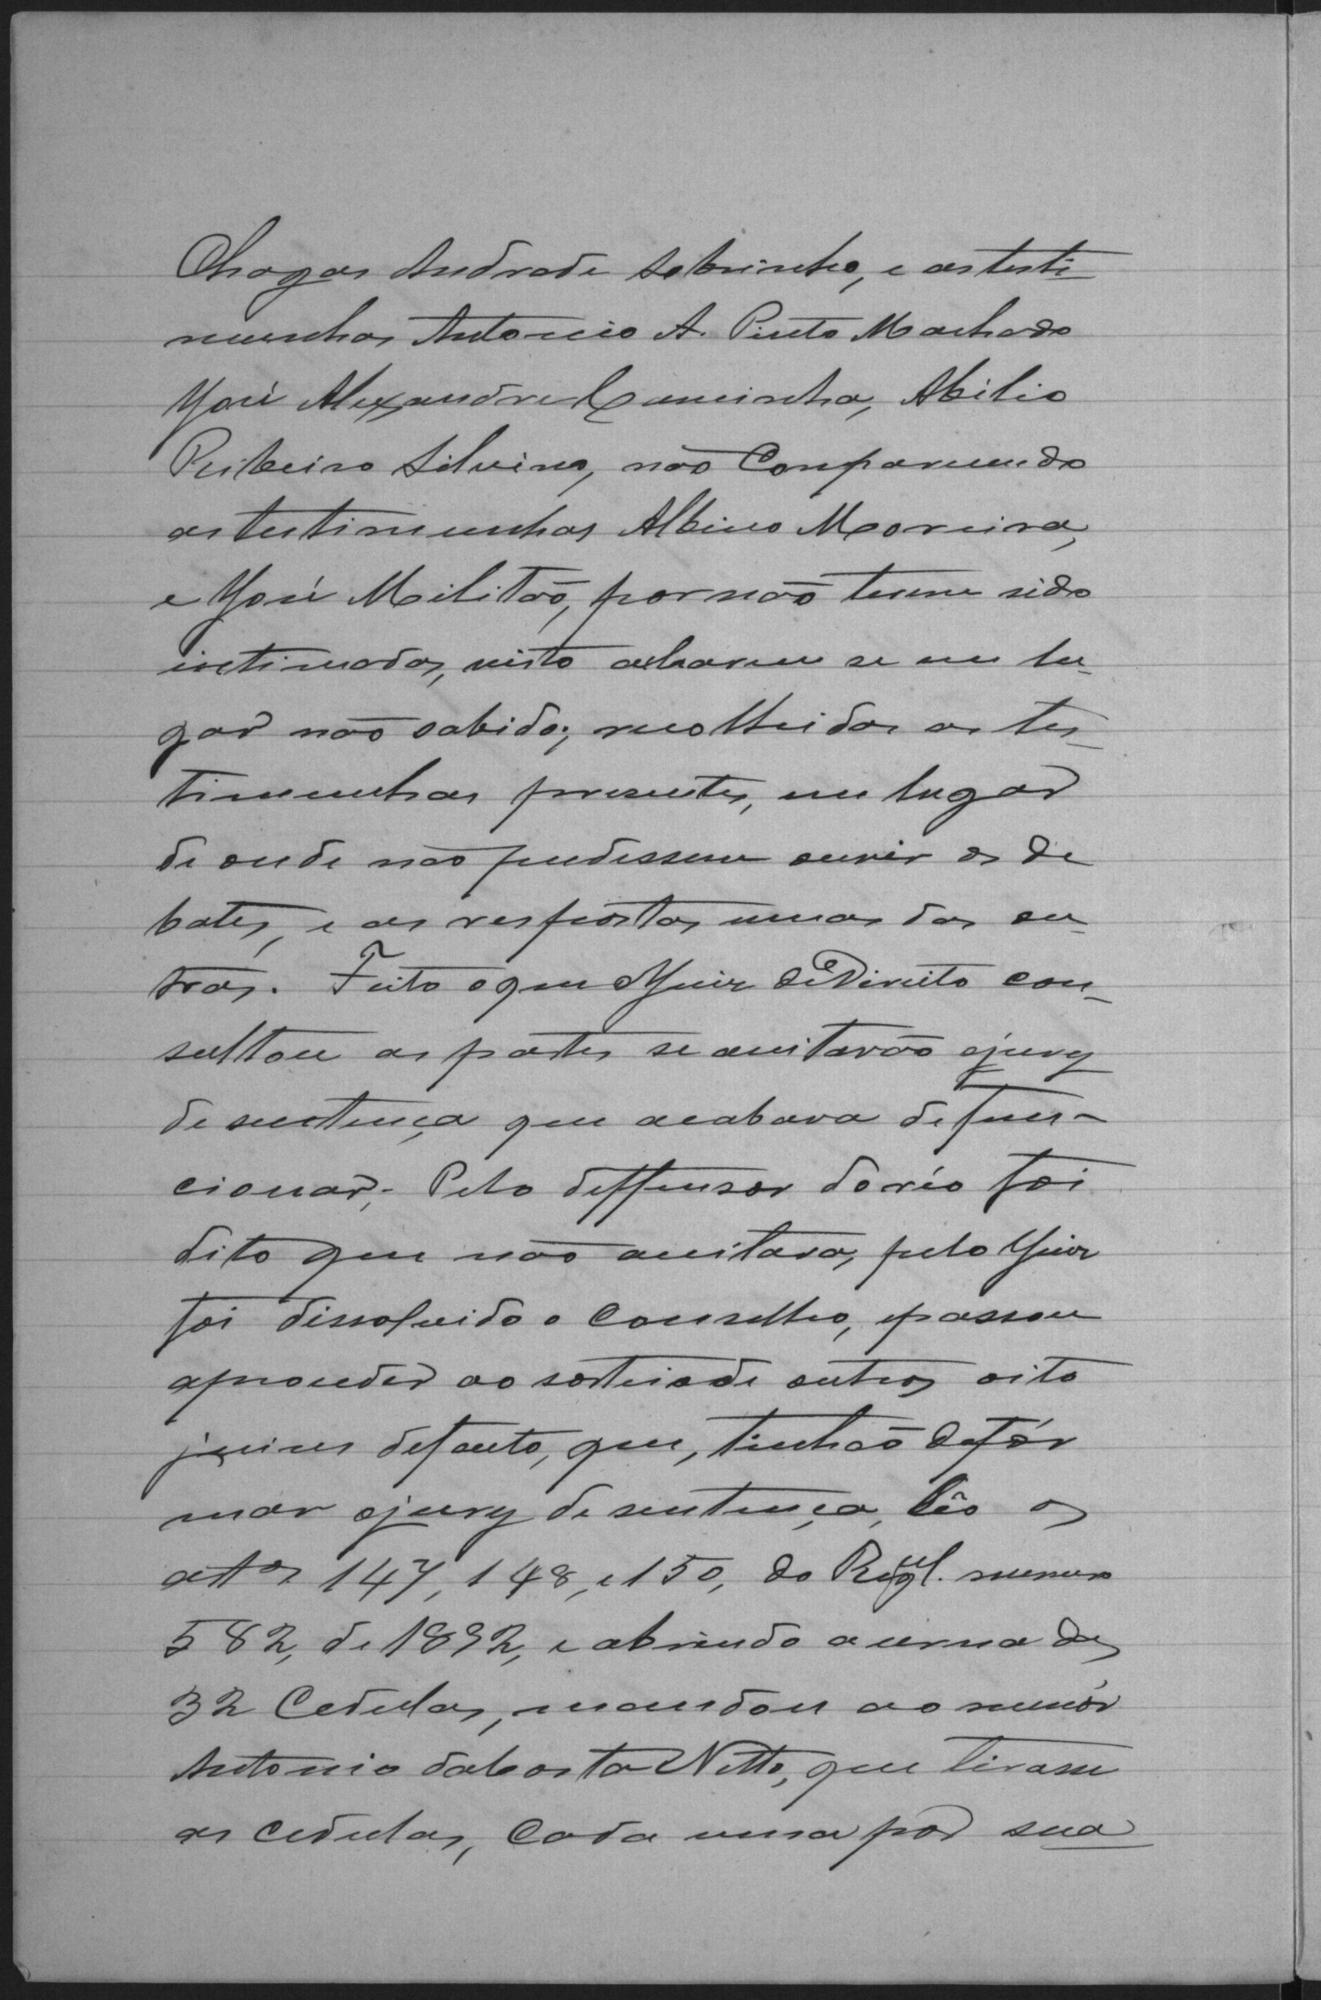 Chagas Andrade Sobrinho, e as testi-
munhas Antonio A. Pinto Machado
José Alexandre Caminha, Abilio
Ribeiro Silvino, não Comparecendo
as testimunhas Albino Moreira,
e José Militão, por não terem sido
intimados, visto acharem se em lu-
gar não sabido; recolhidas as tes-
timunhas presentes, em lugar
de onde não pudessem ouvir os de
bates, e as respostas umas das ou-
tras. Feito o que o Juiz de Direito con-
sultou as partes se aceitavão o jury
de sentença que acabava de func-
cionar; Pelo deffensor do réo foi
dito que não aceitava, pelo Juiz
foi dissolvido o Conselho, e passou
a proceder ao sorteio de outros oito
juizes de facto, que, tinhão de fór
mar o jury de sentença, lêo os
artos 147, 148, e 150, do Regul. numero
582, de 1892, e abrindo a urna das
32 Cedulas, mandou ao menór
Antonio da Costa Netto, que tirasse
as cedulas, Cada uma por sua